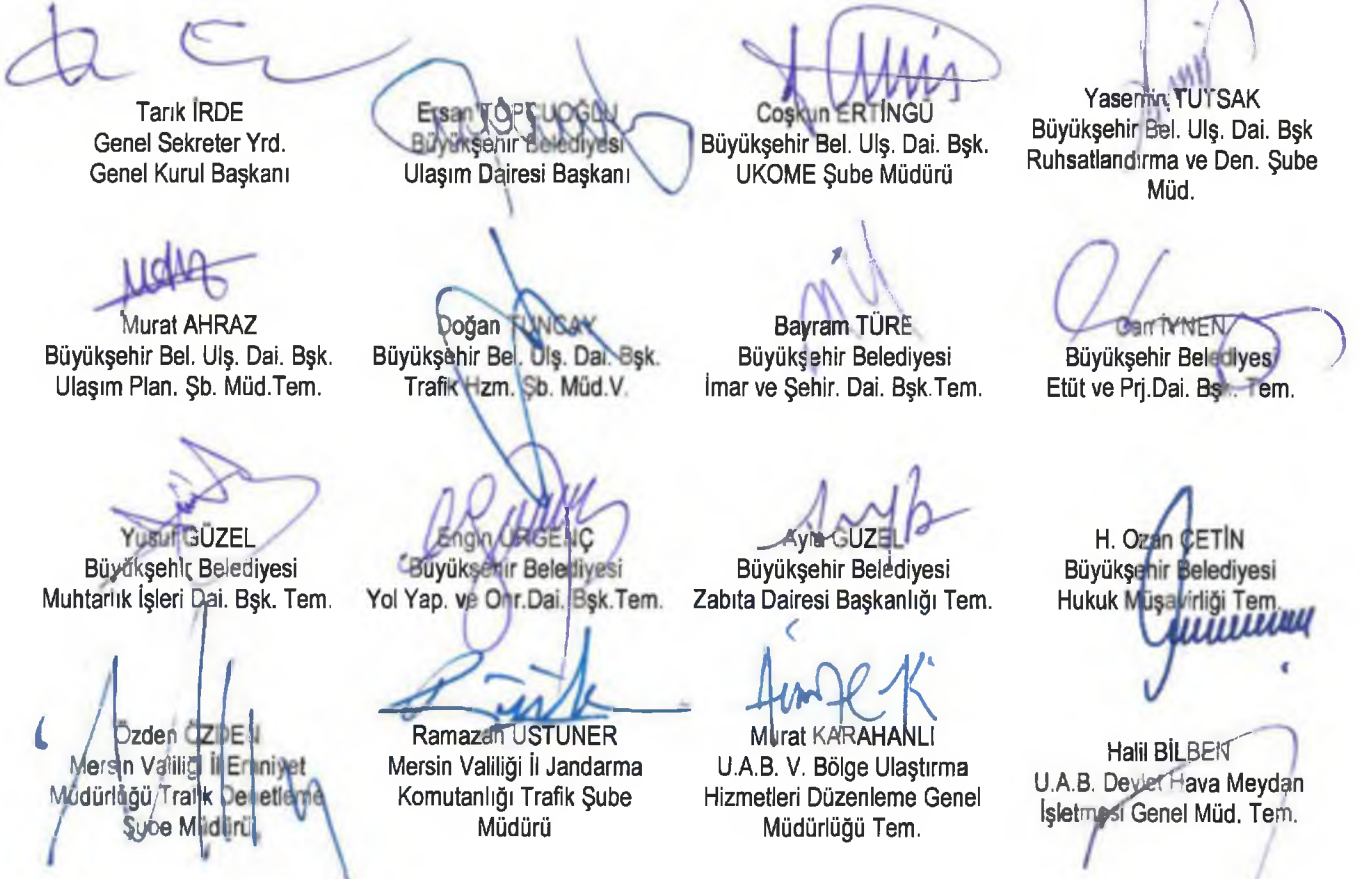 Tarık İRDE
Genel Sekreter Yrd.
Genel Kurul Başkanı
Ersan TOPÇUOĞLU
Büyükşehir Belediyesi
Ulaşım Dairesi Başkanı
Coşkun ERTİNGÜ
Büyükşehir Bel. Ulş. Dai. Bşk.
UKOME Şube Müdürü
Yasemin TUTSAK
Büyükşehir Bel. Ulş. Dai. Bşk
Ruhsatlandırma ve Den. Şube
Müd.
Murat AHRAZ
Büyükşehir Bel. Ulş. Dai. Bşk.
Ulaşım Plan. Şb. Müd.Tem.
Doğan TUNCAY
Büyükşehir Bel. Ulş. Dai. Bşk.
Trafik Hzm. Şb. Müd.V.
Bayram TÜRE
Büyükşehir Belediyesi
İmar ve Şehir. Dai. Bşk.Tem.
Can İYNEN
Büyükşehir Belediyesi
Etüt ve Prj.Dai. Bşk. Tem.
Yusuf GÜZEL
Büyükşehir Belediyesi
Muhtarlık İşleri Dai. Bşk. Tem.
Engin
Büyükşehir Belediyesi
Yol Yap. ve Onr.Dai. Bşk.Tem.
Ayla GÜZEL
Büyükşehir Belediyesi
Zabıta Dairesi Başkanlığı Tem.
H. Ozan ÇETİN
Büyükşehir Belediyesi
Hukuk Müşavirliği Tem.
Özden ÖZDEN
Mersin Valiliği İl Emniyet
Müdürlüğü Trafik Denetleme
Şube Müdürü
Ramazan ÜSTÜNER
Mersin Valiliği İl Jandarma
Komutanlığı Trafik Şube
Müdürü
Murat KARAHANLI
U.A.B. V. Bölge Ulaştırma
Hizmetleri Düzenleme Genel
Müdürlüğü Tem.
Halil BİLBEN
U.A.B. Devlet Hava Meydan
İşletmesi Genel Müd. Tem.